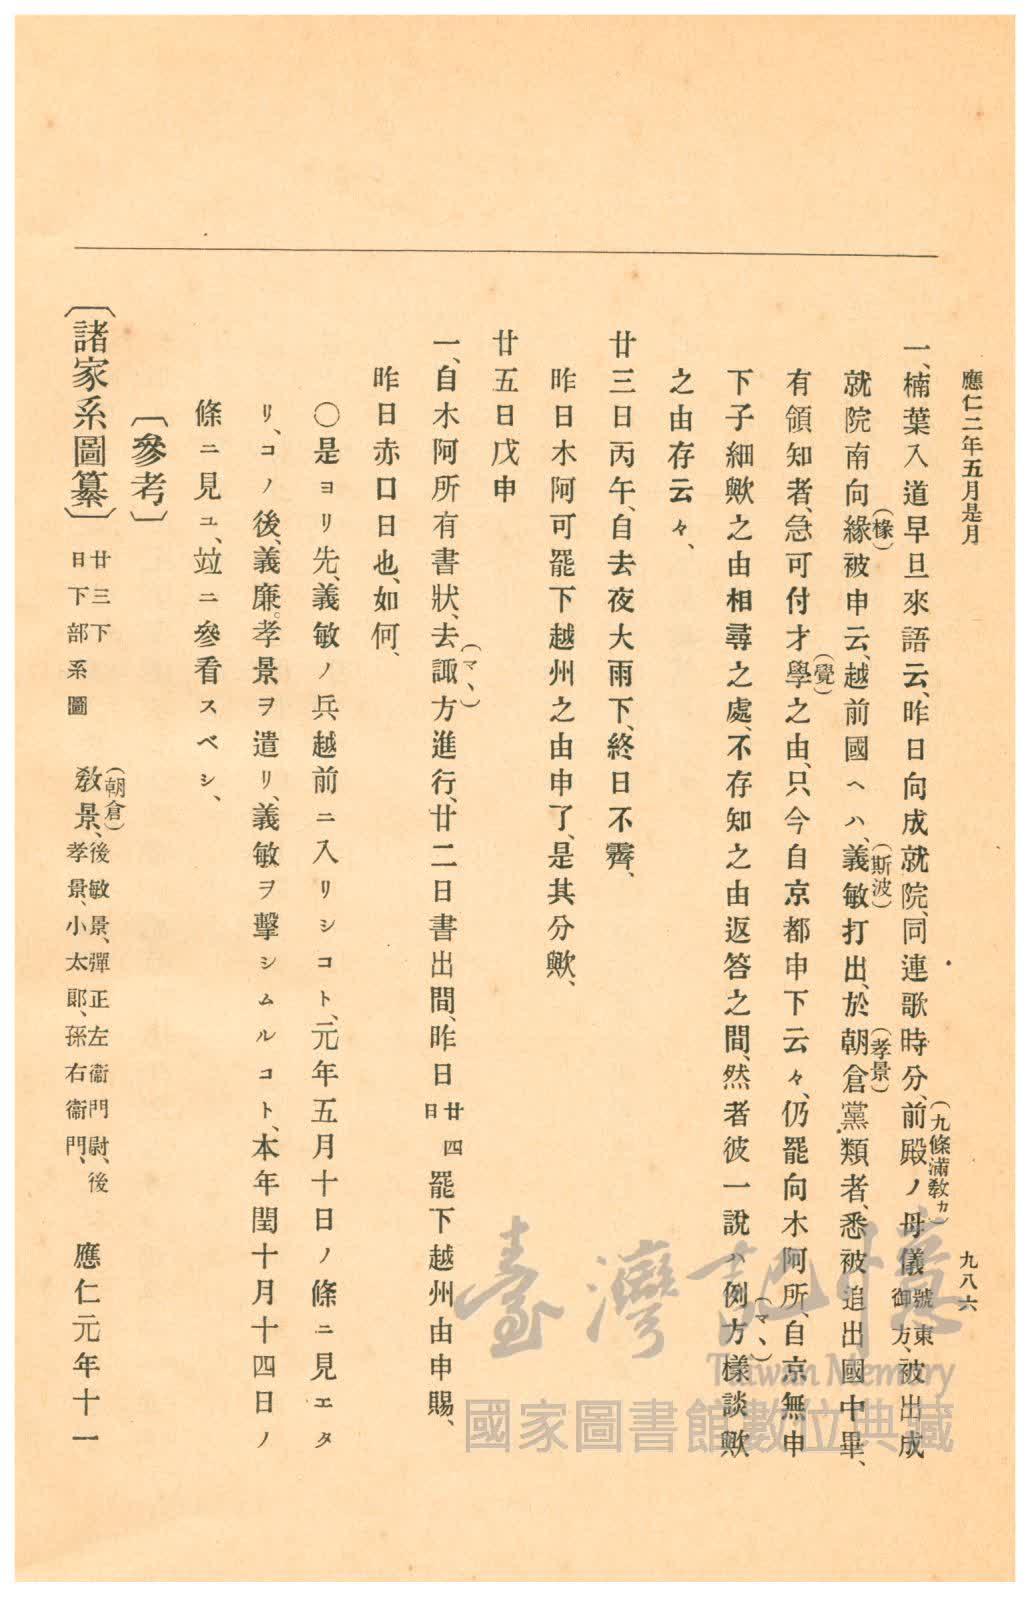 應仁二年五月是月
九八六
一、楠葉入道早旦來語云、昨日向成就院、同連歌時分、前殿(九條滿敎カ)ノ母儀號東御方、被出成
就院南向緣(椽)被申云、越前國ヘハ、義敏(斯波)打出、於朝倉(孝景)黨類者、悉被追出國中畢、
有領知者、急可付才學(覺)之由、只今自京都申下云々、仍罷向木阿所、自京無申
下子細歟之由相尋之處、不存知之由返答之間、然者彼一說ハ例方(マヽ)樣談歟
之由存云々、
廿三日丙午、自去夜大雨下、終日不霽、
昨日木阿可罷下越州之由申了、是其分歟、
廿五日戊申
一、自木阿所有書狀、去諏(マヽ)方進行、廿二日書出間、昨日廿四日罷下越州由申賜、
昨日赤口日也、如何、
〇是ヨリ先、義敏ノ兵越前ニ入リシコト、元年五月十日ノ條ニ見エタ
リ、コノ後、義廉。孝景ヲ遣リ、義敏ヲ擊シムルコト、本年閏十月十四日ノ
條ニ見ユ、竝ニ參看スベシ、
〔參考〕
〔諸家系圖纂〕廿三下日下部系圖 敎景(朝倉)、後敏景、彈正左衞門尉、後孝景、小太郞、孫右衞門、 應仁元年十一
臺灣記憶
Taiwan Memory
國家圖書館數位典藏